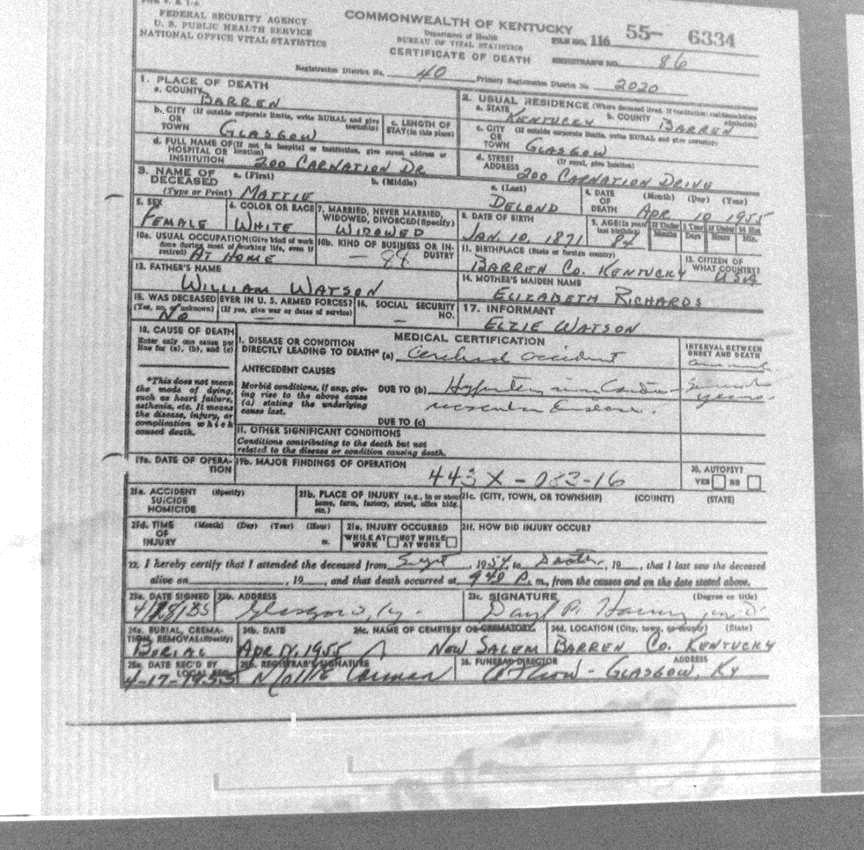 FEDERAL SECURITY AGENCY
U. S. PUBLIC HEALTH SERVICE
NATIONAL OFFICE VITAL STATISTICS
COMMONWEALTH OF KENTUCKY
Department of Health
BUREAU OF VITAL STATISTICS
CERTIFICATE OF DEATH
FILE NO. 116 55- 6334
REGISTRAR'S NO. 86
Registration District No. 40 Primary Registration District No. 2020
1. PLACE OF DEATH
a. COUNTY BARREN
b. CITY (If outside corporate limits, write RURAL and give township)
OR TOWN GLASGOW
c. LENGTH OF STAY (in this place)
d. FULL NAME OF (If not in hospital or institution, give street address or location)
HOSPITAL OR INSTITUTION 200 CARNATION DR
2. USUAL RESIDENCE (Where deceased lived. If institution: residence before admission)
a. STATE KENTUCKY b. COUNTY BARREN
c. CITY (If outside corporate limits, write RURAL and give township)
OR TOWN GLASGOW
d. STREET ADDRESS (If rural, give location)
200 CARNATION
3. NAME OF DECEASED (Type or Print)
a. (First) b. (Middle) c. (Last)
MATTIE DELOND
4. DATE OF DEATH (Month) (Day) (Year)
APR 10 1955
5. SEX FEMALE
6. COLOR OR RACE WHITE
7. MARRIED, NEVER MARRIED, WIDOWED, DIVORCED (Specify) WIDOWED
8. DATE OF BIRTH JAN. 10, 1871
9. AGE (In years last birthday) 84
If Under 1 Year Months Days
If Under 24 Hrs. Hours Min.
10a. USUAL OCCUPATION (Give kind of work done during most of working life, even if retired) AT HOME
10b. KIND OF BUSINESS OR INDUSTRY
11. BIRTHPLACE (State or foreign country) BARREN CO. KENTUCKY
12. CITIZEN OF WHAT COUNTRY? USA
13. FATHER'S NAME WILLIAM WATSON
14. MOTHER'S MAIDEN NAME ELIZABETH RICHARDS
15. WAS DECEASED EVER IN U. S. ARMED FORCES?
(Yes, no, or unknown) (If yes, give war or dates of service)
NO —
16. SOCIAL SECURITY NO. —
17. INFORMANT ELZIE WATSON
18. CAUSE OF DEATH
Enter only one cause per line for (a), (b), and (c)
*This does not mean the mode of dying, such as heart failure, asthenia, etc. It means the disease, injury, or complication which caused death.
MEDICAL CERTIFICATION
INTERVAL BETWEEN ONSET AND DEATH
I. DISEASE OR CONDITION DIRECTLY LEADING TO DEATH* (a) Cerebral accident
ANTECEDENT CAUSES
Morbid conditions, if any, giving rise to the above cause (a) stating the underlying cause last.
DUE TO (b) Hypertensive Cardio
vascular disease.
years
DUE TO (c)
II. OTHER SIGNIFICANT CONDITIONS
Conditions contributing to the death but not related to the disease or condition causing death.
19a. DATE OF OPERATION
19b. MAJOR FINDINGS OF OPERATION
443X - 083-16
20. AUTOPSY?
YES NO
21a. ACCIDENT SUICIDE HOMICIDE (Specify)
21b. PLACE OF INJURY (e.g., in or about home, farm, factory, street, office bldg. etc.)
21c. (CITY, TOWN, OR TOWNSHIP) (COUNTY) (STATE)
21d. TIME OF INJURY (Month) (Day) (Year) (Hour) m.
21e. INJURY OCCURRED
WHILE AT WORK NOT WHILE AT WORK
21f. HOW DID INJURY OCCUR?
22. I hereby certify that I attended the deceased from Sept, 1954, to Death, 19, that I last saw the deceased
alive on , 19 , and that death occurred at 940 P. m., from the causes and on the date stated above.
23a. DATE SIGNED
23b. ADDRESS Glasgow, Ky.
23c. SIGNATURE (Degree or title)
24a. BURIAL, CREMATION, REMOVAL (Specify) BURIAL
24b. DATE APR 1955
24c. NAME OF CEMETERY OR CREMATORY NEW SALEM
24d. LOCATION (City, town, or county) (State)
BARREN CO. KENTUCKY
25a. DATE REC'D BY LOCAL REG. 4-17-1955
25b. REGISTRAR'S SIGNATURE
26. FUNERAL DIRECTOR ADDRESS
- GLASGOW, KY